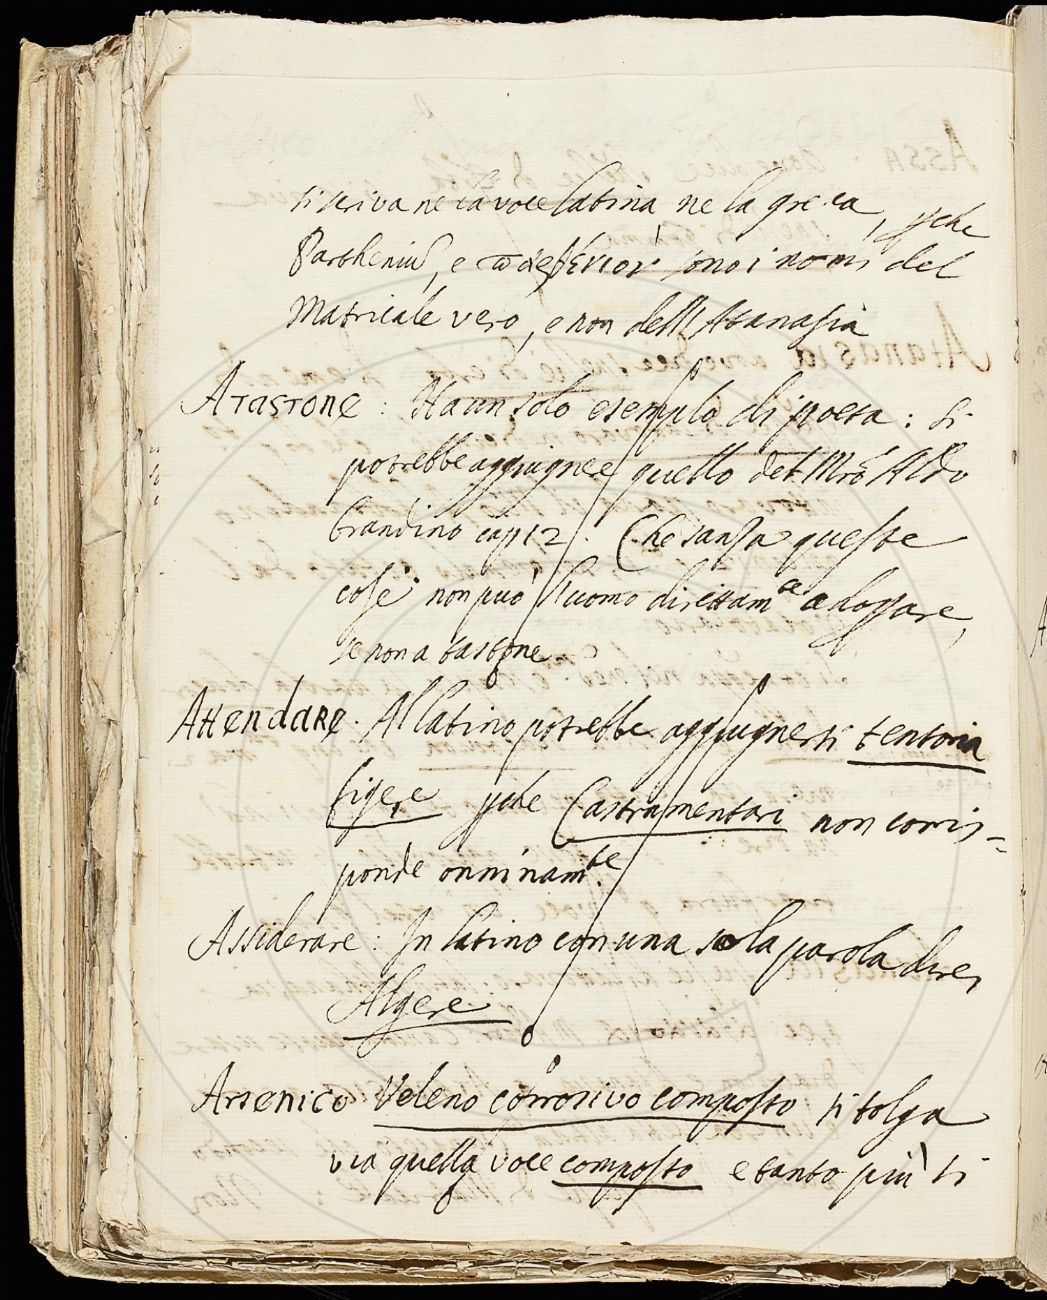 si scriva ne la voce latina ne la greca, pche
Partheniũ, e παρθένιον sono i nomi del
Matricale vero, e non dell'Atanasia
Atastone: Ha un solo esemplo di poeta: Si
potrebbe aggiugnere quello del Mrõ Aldo
brandino cap. 12. Che sanza queste
cose non può l'uomo direttam.te adossare,
se non a tastone
Attendare. Al latino potrebbe aggiugnersi tentoria
figere pche Castramentari non corris=
ponde onninam.te
Assiderare: In latino con una sola parola direi
Algere
Arsenico Veleno corrosivo composto si tolga
via quella voce composto e tanto più si